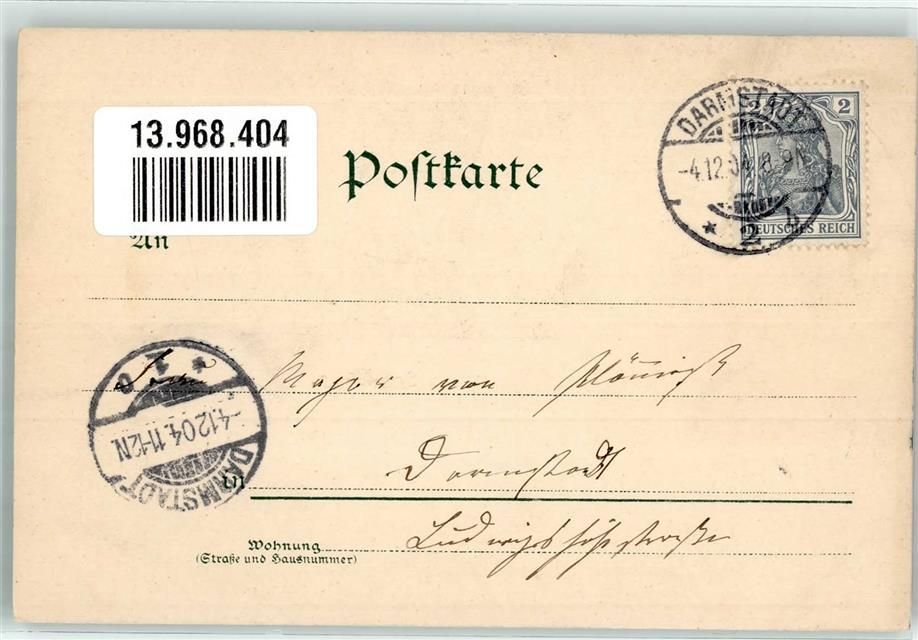 13.968.404
Postkarte
DARMSTADT
-4.12.04. 8-9N.
* 2 b
2 2
DEUTSCHES REICH
An
Major von
* 2
-4.12.04.11-12N
DARMSTADT
Darmstadt
in
Ludwigshöhstraße
Wohnung
(Straße und Hausnummer)